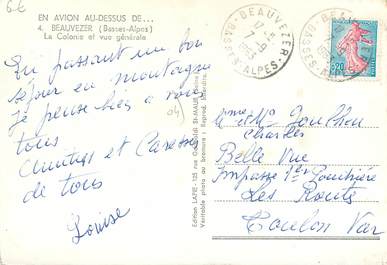 6L
EN AVION AU-DESSUS DE...
4. BEAUVEZER (Basses-Alpes)
La Colonie et vue générale
En passant un bon
séjour en montagne
Je pense bien a vous
tous
Amitiés et Caresses
de tous
Louise
(04)
Edition LAPIE - 125 rue Garibaldi ST-MAUR (Seine)
Véritable photo au bromure : Reprod. interdite.
BEAUVEZER
17
7
1963
BASSES-ALPES
BEAUVEZER
BASSES-ALPES
0,20
Mme et Mr
Charles
Belle Vue
Impasse 1er
Les Routes
Toulon Var